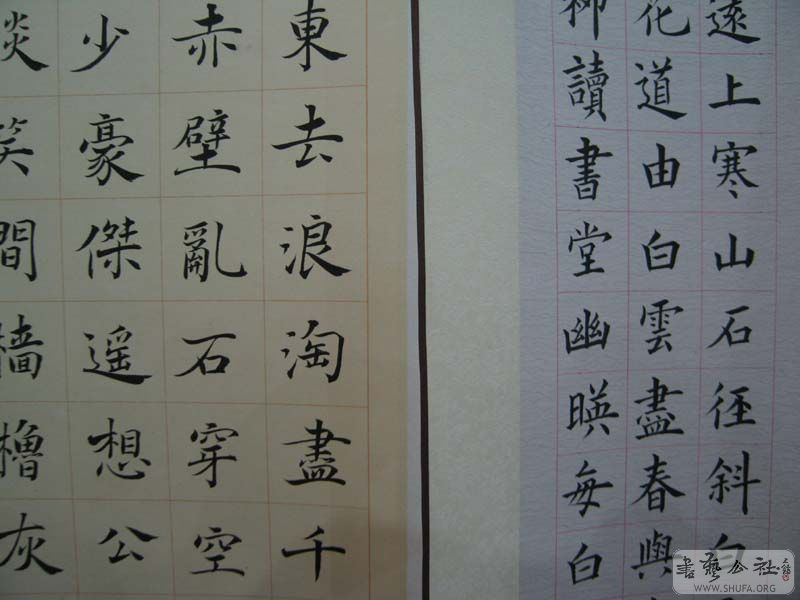 遠上寒山石径斜白
花道由白雲盡春與
柳讀書堂幽暎每白
東去浪淘盡千
赤壁亂石穿空
少豪傑遥想公
談笑間檣櫓灰
書藝公社
WWW.SHUFA.ORG